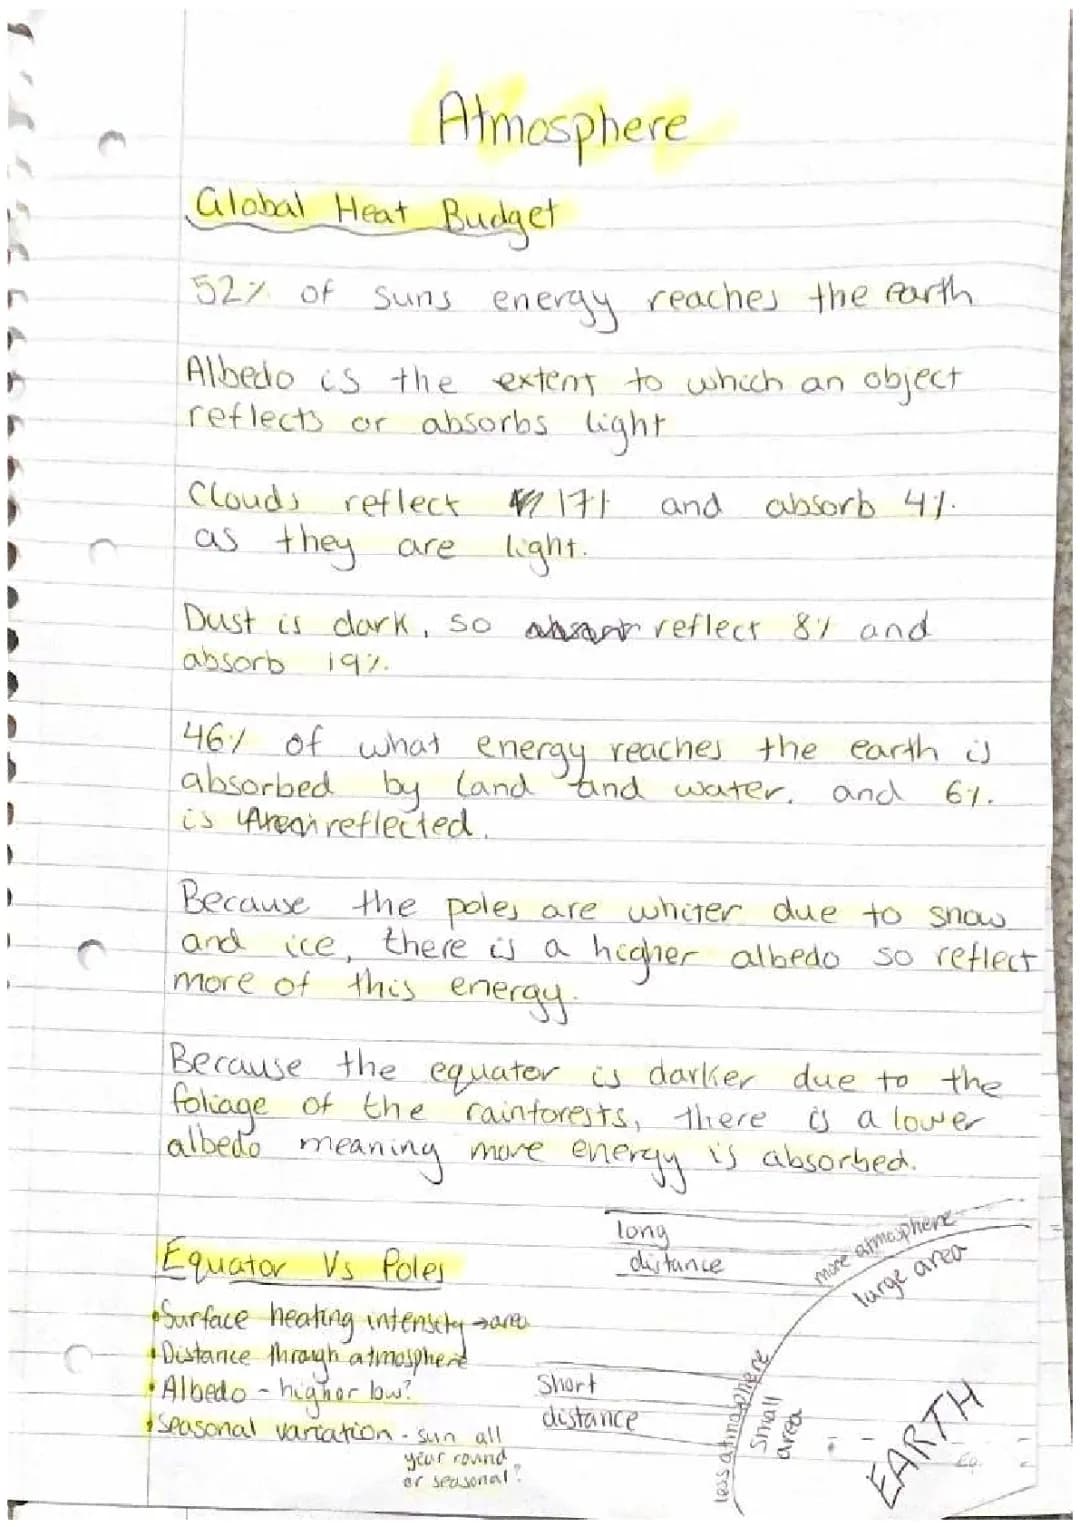 Atmosphere
Global Heat Budget
52% of suns energy reaches the earth
Albedo is the extent to which an object
reflects or absorbs light
Clouds reflect 17% and absorb 4%.
as they are light.
Dust is dark, so reflect 8% and
absorb 19%.
46% of what energy reaches the earth is
absorbed by land and water, and 6%.
is reflected.
Because the poles are whiter due to snow
and ice, there is a higher albedo so reflect
more of this energy.
Because the equator is darker due to the
foliage of the rainforests, there is a lower
albedo meaning more energy is absorbed.
Equator Vs Poles
•Surface heating intensity →area
•Distance through atmosphere
•Albedo - high or low?
•Seasonal variation - sun all
year round
or seasonal?
long
distance
more atmosphere
large area
Short
distance
less atmosphere
Small
area
EARTH